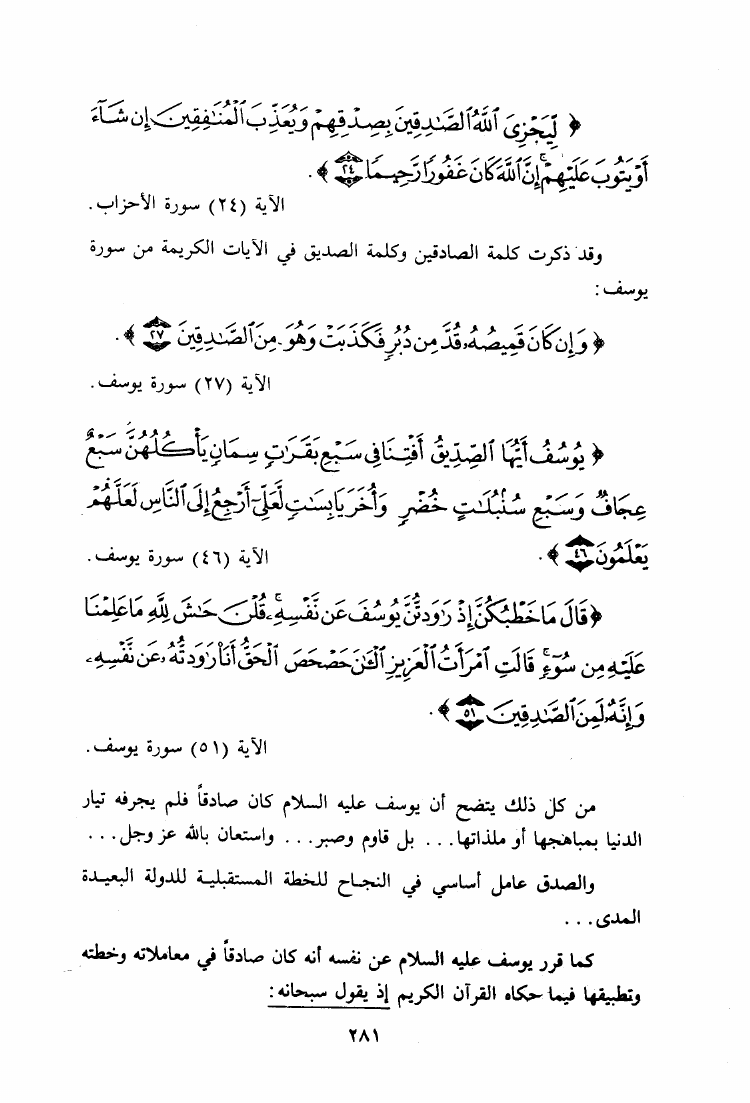 ﴿ لِّيَجْزِىَ ٱللَّهُ ٱلصَّـٰدِقِينَ بِصِدْقِهِمْ وَيُعَذِّبَ ٱلْمُنَـٰفِقِينَ إِن شَآءَ
أَوْ يَتُوبَ عَلَيْهِمْ ۚ إِنَّ ٱللَّهَ كَانَ غَفُورًا رَّحِيمًا ٢٤ ﴾ .
الآية (٢٤) سورة الأحزاب .
وقد ذكرت كلمة الصادقين وكلمة الصديق في الآيات الكريمة من سورة
يوسف :
﴿ وَإِن كَانَ قَمِيصُهُۥ قُدَّ مِن دُبُرٍ فَكَذَبَتْ وَهُوَ مِنَ ٱلصَّـٰدِقِينَ ٢٧ ﴾ .
الآية (٢٧) سورة يوسف .
﴿ يُوسُفُ أَيُّهَا ٱلصِّدِّيقُ أَفْتِنَا فِى سَبْعِ بَقَرَٰتٍ سِمَانٍ يَأْكُلُهُنَّ سَبْعٌ
عِجَافٌ وَسَبْعِ سُنۢبُلَـٰتٍ خُضْرٍ وَأُخَرَ يَابِسَـٰتٍ لَّعَلِّىٓ أَرْجِعُ إِلَى ٱلنَّاسِ لَعَلَّهُمْ
يَعْلَمُونَ ٤٦ ﴾ . الآية (٤٦) سورة يوسف .
﴿ قَالَ مَا خَطْبُكُنَّ إِذْ رَٰوَدتُّنَّ يُوسُفَ عَن نَّفْسِهِۦ ۚ قُلْنَ حَـٰشَ لِلَّهِ مَا عَلِمْنَا
عَلَيْهِ مِن سُوٓءٍ ۚ قَالَتِ ٱمْرَأَتُ ٱلْعَزِيزِ ٱلْـَٔـٰنَ حَصْحَصَ ٱلْحَقُّ أَنَا۠ رَٰوَدتُّهُۥ عَن نَّفْسِهِۦ
وَإِنَّهُۥ لَمِنَ ٱلصَّـٰدِقِينَ ٥١ ﴾ .
الآية (٥١) سورة يوسف .
من كل ذلك يتضح أن يوسف عليه السلام كان صادقاً فلم يجرفه تيار
الدنيا بمباهجها أو ملذاتها . . . بل قاوم وصبر . . . واستعان بالله عز وجل . . .
والصدق عامل أساسي في النجاح للخطة المستقبلية للدولة البعيدة
المدى . . .
كما قرر يوسف عليه السلام عن نفسه أنه كان صادقاً في معاملاته وخطته
وتطبيقها فيما حكاه القرآن الكريم إذ يقول سبحانه :
٢٨١